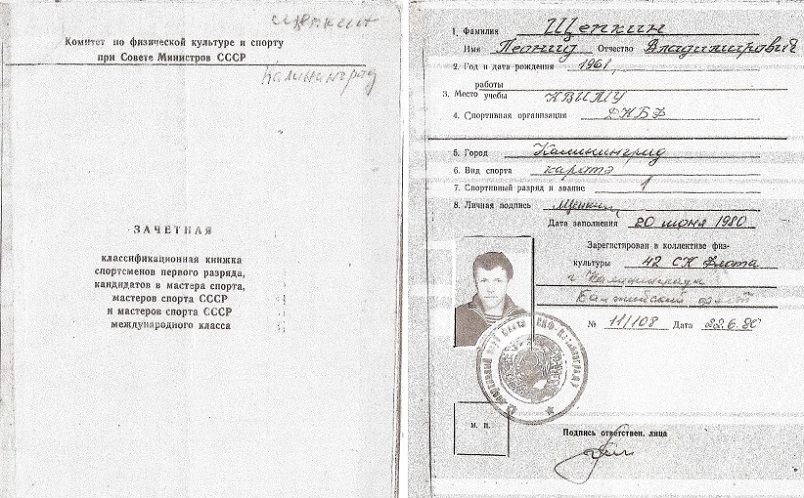 Щепкин
Комитет по физической культуре и спорту
при Совете Министров СССР
Калининград
ЗАЧЕТНАЯ
классификационная книжка
спортсменов первого разряда,
кандидатов в мастера спорта,
мастеров спорта СССР
и мастеров спорта СССР
международного класса
1. Фамилия Щепкин
Имя Леонид Отчество Владимирович
2. Год и дата рождения 1961,
работы
3. Место учебы КВИМУ
4. Спортивная организация ДКБФ
5. Город Калининград
6. Вид спорта каратэ
7. Спортивный разряд и звание 1
8. Личная подпись Щепкин
Дата заполнения 20 июня 1980
Зарегистрирован в коллективе физ-
культуры 42 СК Флота
г. Калининграда
Балтийский флот
№ 11/108 Дата 22.6.80
М. П.
Подпись ответствен. лица